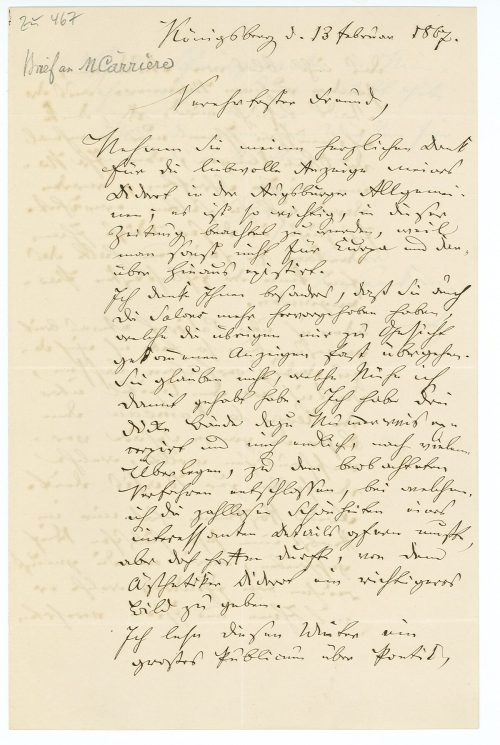 Zu 467
Königsberg d. 13 Februar 1867.
Brief an M Carriere
Verehrtester Freund,
Nehmen Sie meinen herzlichen Dank
für die liebevolle Anzeige meines
Diderot in der Augsburger Allgemei-
nen; es ist so wichtig, in dieser
Zeitung beachtet zu werden, weil
man sonst nicht für Europa und dar-
über hinaus existirt.
Ich danke Ihnen besonders, daß Sie auch
die Salons mehr hervorgehoben haben,
welche die übrigen mir zu Gesicht
gekommenen Anzeigen fast übergehen.
Sie glauben nicht, welche Mühe ich
damit gehabt habe. Ich habe drei
dicke Bände dazu Nummerweis ex-
cerpirt und mich endlich, nach vielem
Überlegen, zu dem beobachteten
Verfahren entschlossen, bei welchem
ich die zahllosen Schönheiten eines
interessanten Details opfern mußte,
aber doch hoffen durfte, von dem
Ästhetiker Diderot ein richtigeres
Bild zu geben.
Ich lese diesen Winter ein
großes Publicum über Poetik,